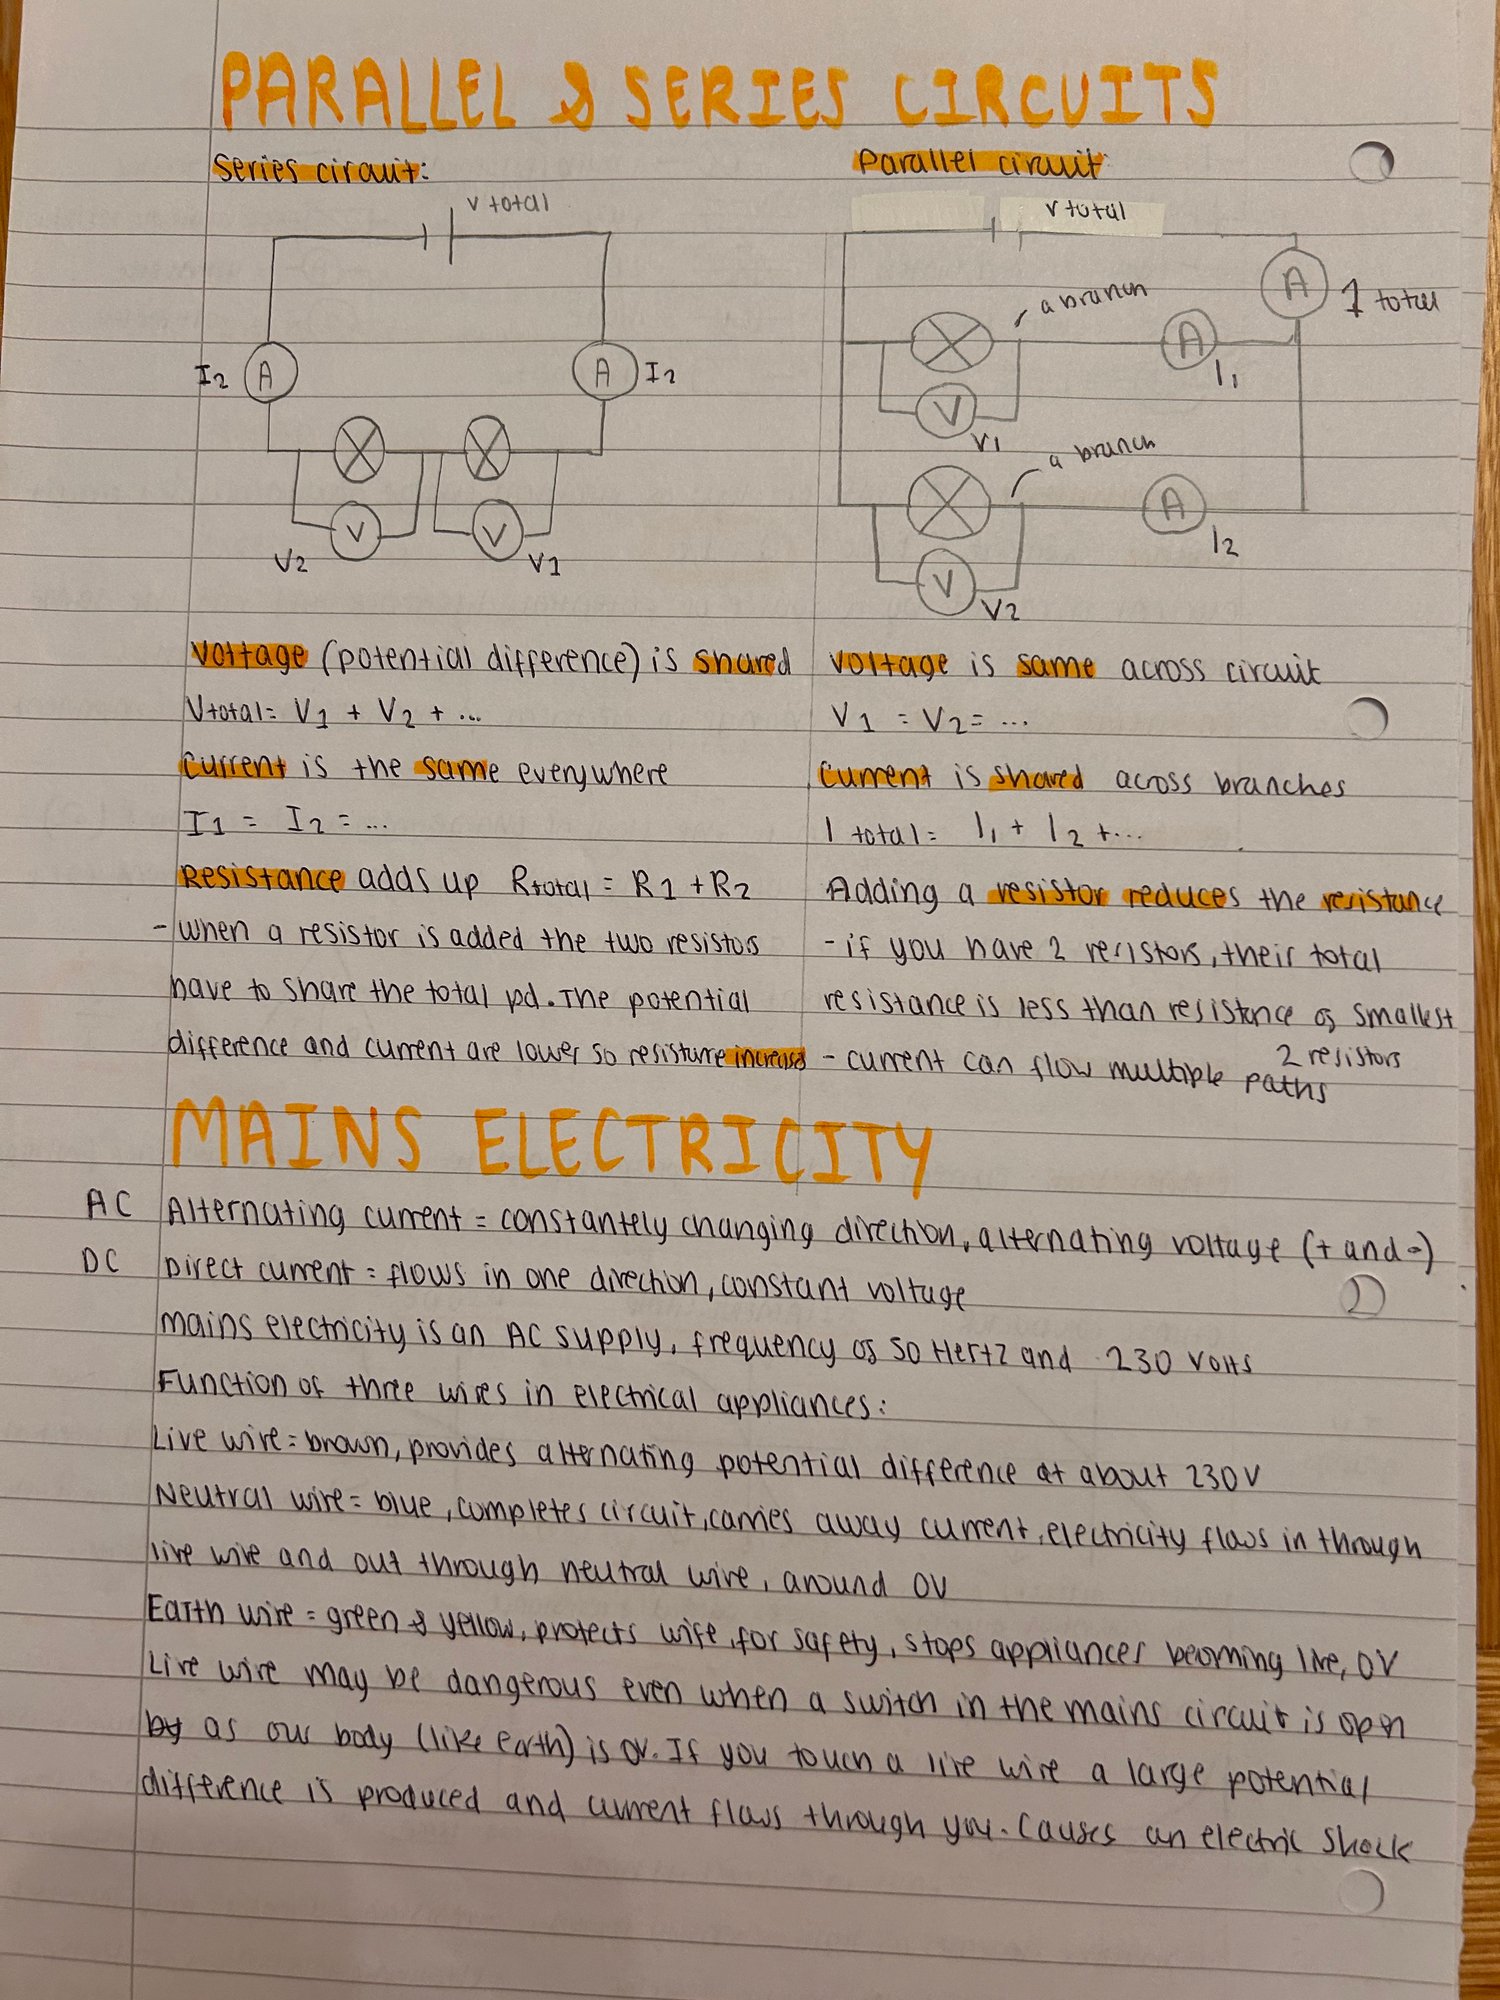 PARALLEL & SERIES CIRCUITS
Series circuit:
V total
I2 A
A I2
V
V
V2
V1
Parallel circuit:
V total
A
I total
a branch
A
I1
V
V1
a branch
A
I2
V
V2
Voltage (potential difference) is shared
Vtotal = V1 + V2 + ...
Current is the same everywhere
I1 = I2 = ...
Resistance adds up Rtotal = R1 + R2
- when a resistor is added the two resistors
have to share the total pd. The potential
difference and current are lower so increases
Voltage is same across circuit
V1 = V2 = ...
Current is shared across branches
I total = I1 + I2 + ...
Adding a resistor reduces the resistance
- if you have 2 resistors, their total
resistance is less than resistance of smallest
2 resistors
- current can flow multiple paths
MAINS ELECTRICITY
AC Alternating current = constantely changing direction, alternating voltage (+ and -)
DC Direct current = flows in one direction, constant voltage
Mains electricity is an AC supply, frequency of 50 Hertz and 230 Volts
Function of three wires in electrical appliances:
Live wire = brown, provides alternating potential difference at about 230V
Neutral wire = blue, completes circuit, carries away current, electricity flows in through
live wire and out through neutral wire, around 0V
Earth wire = green & yellow, protects wire, for safety, stops appliances becoming live, 0V
Live wire may be dangerous even when a switch in the mains circuit is open
by as our body (like earth) is 0V. If you touch a live wire a large potential
difference is produced and current flows through you. Causes an electric shock